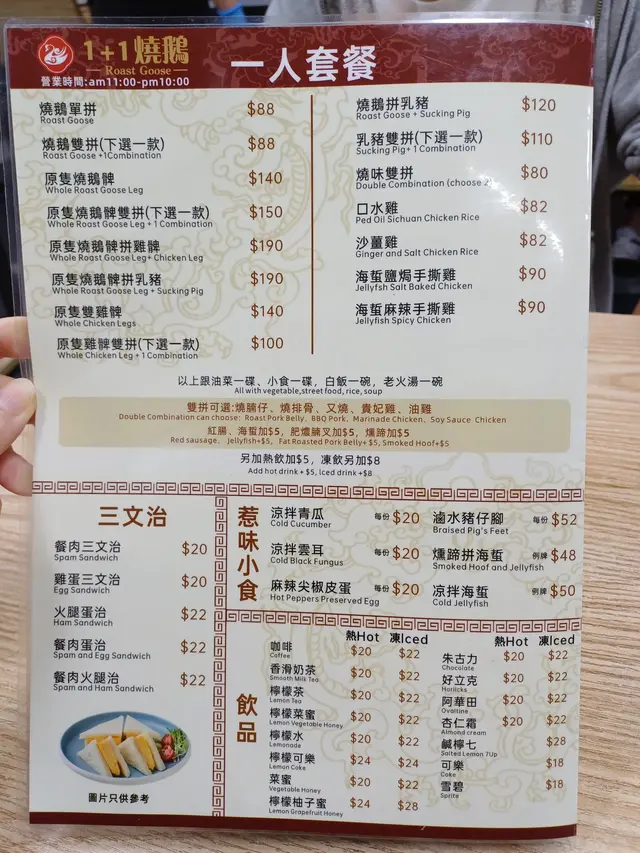 1+1燒鵝
Roast Goose
營業時間:am11:00-pm10:00
一人套餐
燒鵝單拼 $88
Roast Goose
燒鵝雙拼(下選一款) $88
Roast Goose +1Combination
原隻燒鵝髀 $140
Whole Roast Goose Leg
原隻燒鵝髀雙拼(下選一款) $150
Whole Roast Goose Leg + 1 Combination
原隻燒鵝髀拼雞髀 $190
Whole Roast Goose Leg+ Chicken Leg
原隻燒鵝髀拼乳豬 $190
Whole Roast Goose Leg + Sucking Pig
原隻雙雞髀 $140
Whole Chicken Legs
原隻雞髀雙拼(下選一款) $100
Whole Chicken Leg + 1 Combination
燒鵝拼乳豬 $120
Roast Goose + Sucking Pig
乳豬雙拼(下選一款) $110
Sucking Pig+ 1 Combination
燒味雙拼 $80
Double Combination (choose 2)
口水雞 $82
Ped Oil Sichuan Chicken Rice
沙薑雞 $82
Ginger and Salt Chicken Rice
海蜇鹽焗手撕雞 $90
Jellyfsh Salt Baked Chicken
海蜇麻辣手撕雞 $90
Jellyfish Spicy Chicken
以上跟油菜一碟、小食一碟，白飯一碗，老火湯一碗
All with vegetable,street food, rice, soup
雙拼可選:燒腩仔、燒排骨、叉燒、貴妃雞、油雞
Double Combination can choose: Roast Pork Belly、BBQ Pork、Marinade Chicken、Soy Sauce Chicken
紅腸、海蜇加$5，肥燶腩叉加$5，燻蹄加$5
Red sausage、 Jellyfish+$5, Fat Roasted Pork Belly+ $5, Smoked Hoof+$5
另加熱飲加$5，凍飲另加$8
Add hot drink + $5, Iced drink +$8
三文治
餐肉三文治 $20
Spam Sandwich
雞蛋三文治 $20
Egg Sandwich
火腿蛋治 $22
Ham Sandwich
餐肉蛋治 $22
Spam and Egg Sandwich
餐肉火腿治 $22
Spam and Ham Sandwich
圖片只供參考
惹味小食
涼拌青瓜 每份 $20
Cold Cucumber
涼拌雲耳 每份 $20
Cold Black Fungus
麻辣尖椒皮蛋 每份 $20
Hot Peppers Preserved Egg
滷水豬仔腳 每份 $52
Braised Pig's Feet
燻蹄拼海蜇 例牌 $48
Smoked Hoof and Jellyfish
涼拌海蜇 例牌 $50
Cold Jellyfish
飲品
熱Hot 凍Iced
咖啡 $20 $22
Coffee
香滑奶茶 $20 $22
Smooth Milk Tea
檸檬茶 $20 $22
Lemon Tea
檸檬菜蜜 $20 $22
Lemon Vegetable Honey
檸檬水 $20 $22
Lemonade
檸檬可樂 $24 $24
Lemon Coke
菜蜜 $20 $22
Vegetable Honey
檸檬柚子蜜 $24 $28
Lemon Grapefruit Honey
熱Hot 凍Iced
朱古力 $20 $22
Chocolate
好立克 $20 $22
Horlicks
阿華田 $20 $22
Ovaltine
杏仁霜 $20 $22
Almond cream
鹹檸七 $28
Salted Lemon 7Up
可樂 $18
Coke
雪碧 $18
Sprite